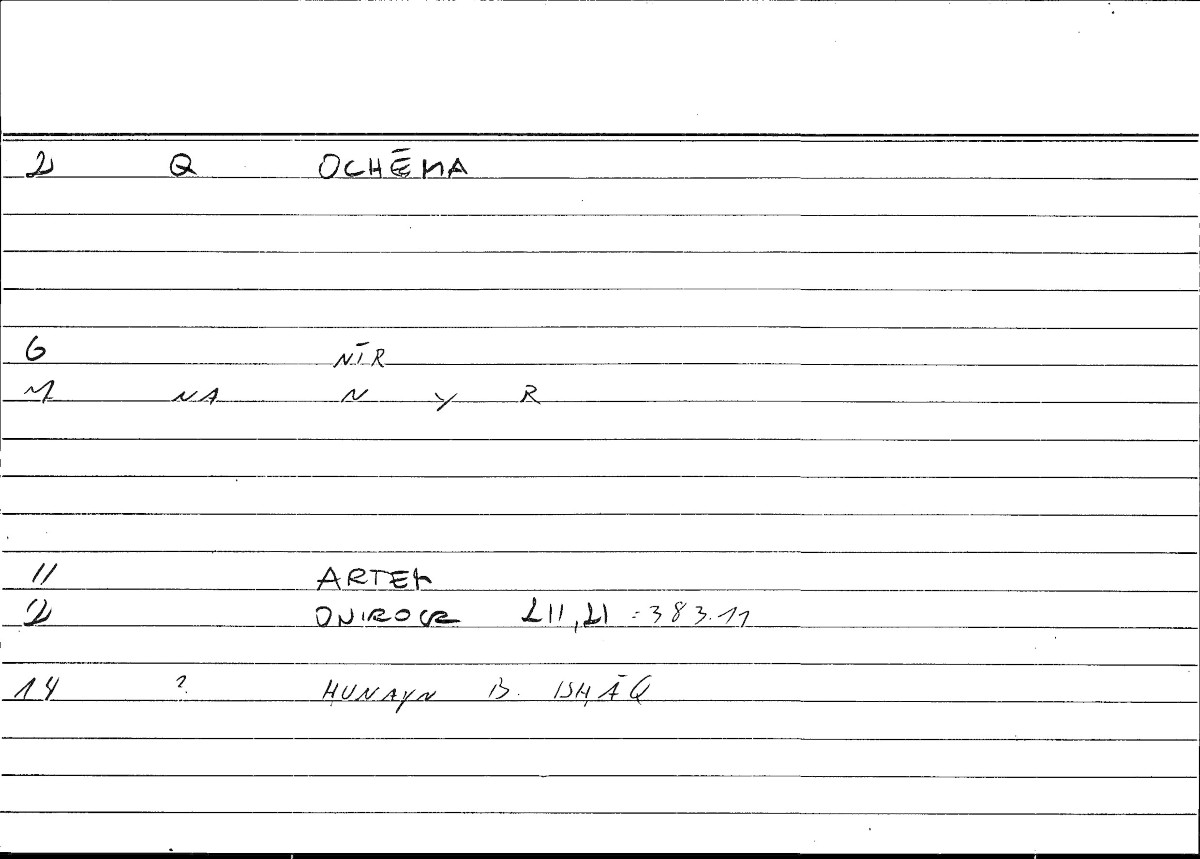 2 Q OCHĒMA
6 NĪR
NA N Y R
11 ARTEM
2 ONIROCR 211,21 = 383.11
14 ? ḤUNAYN B. ISḤĀQ